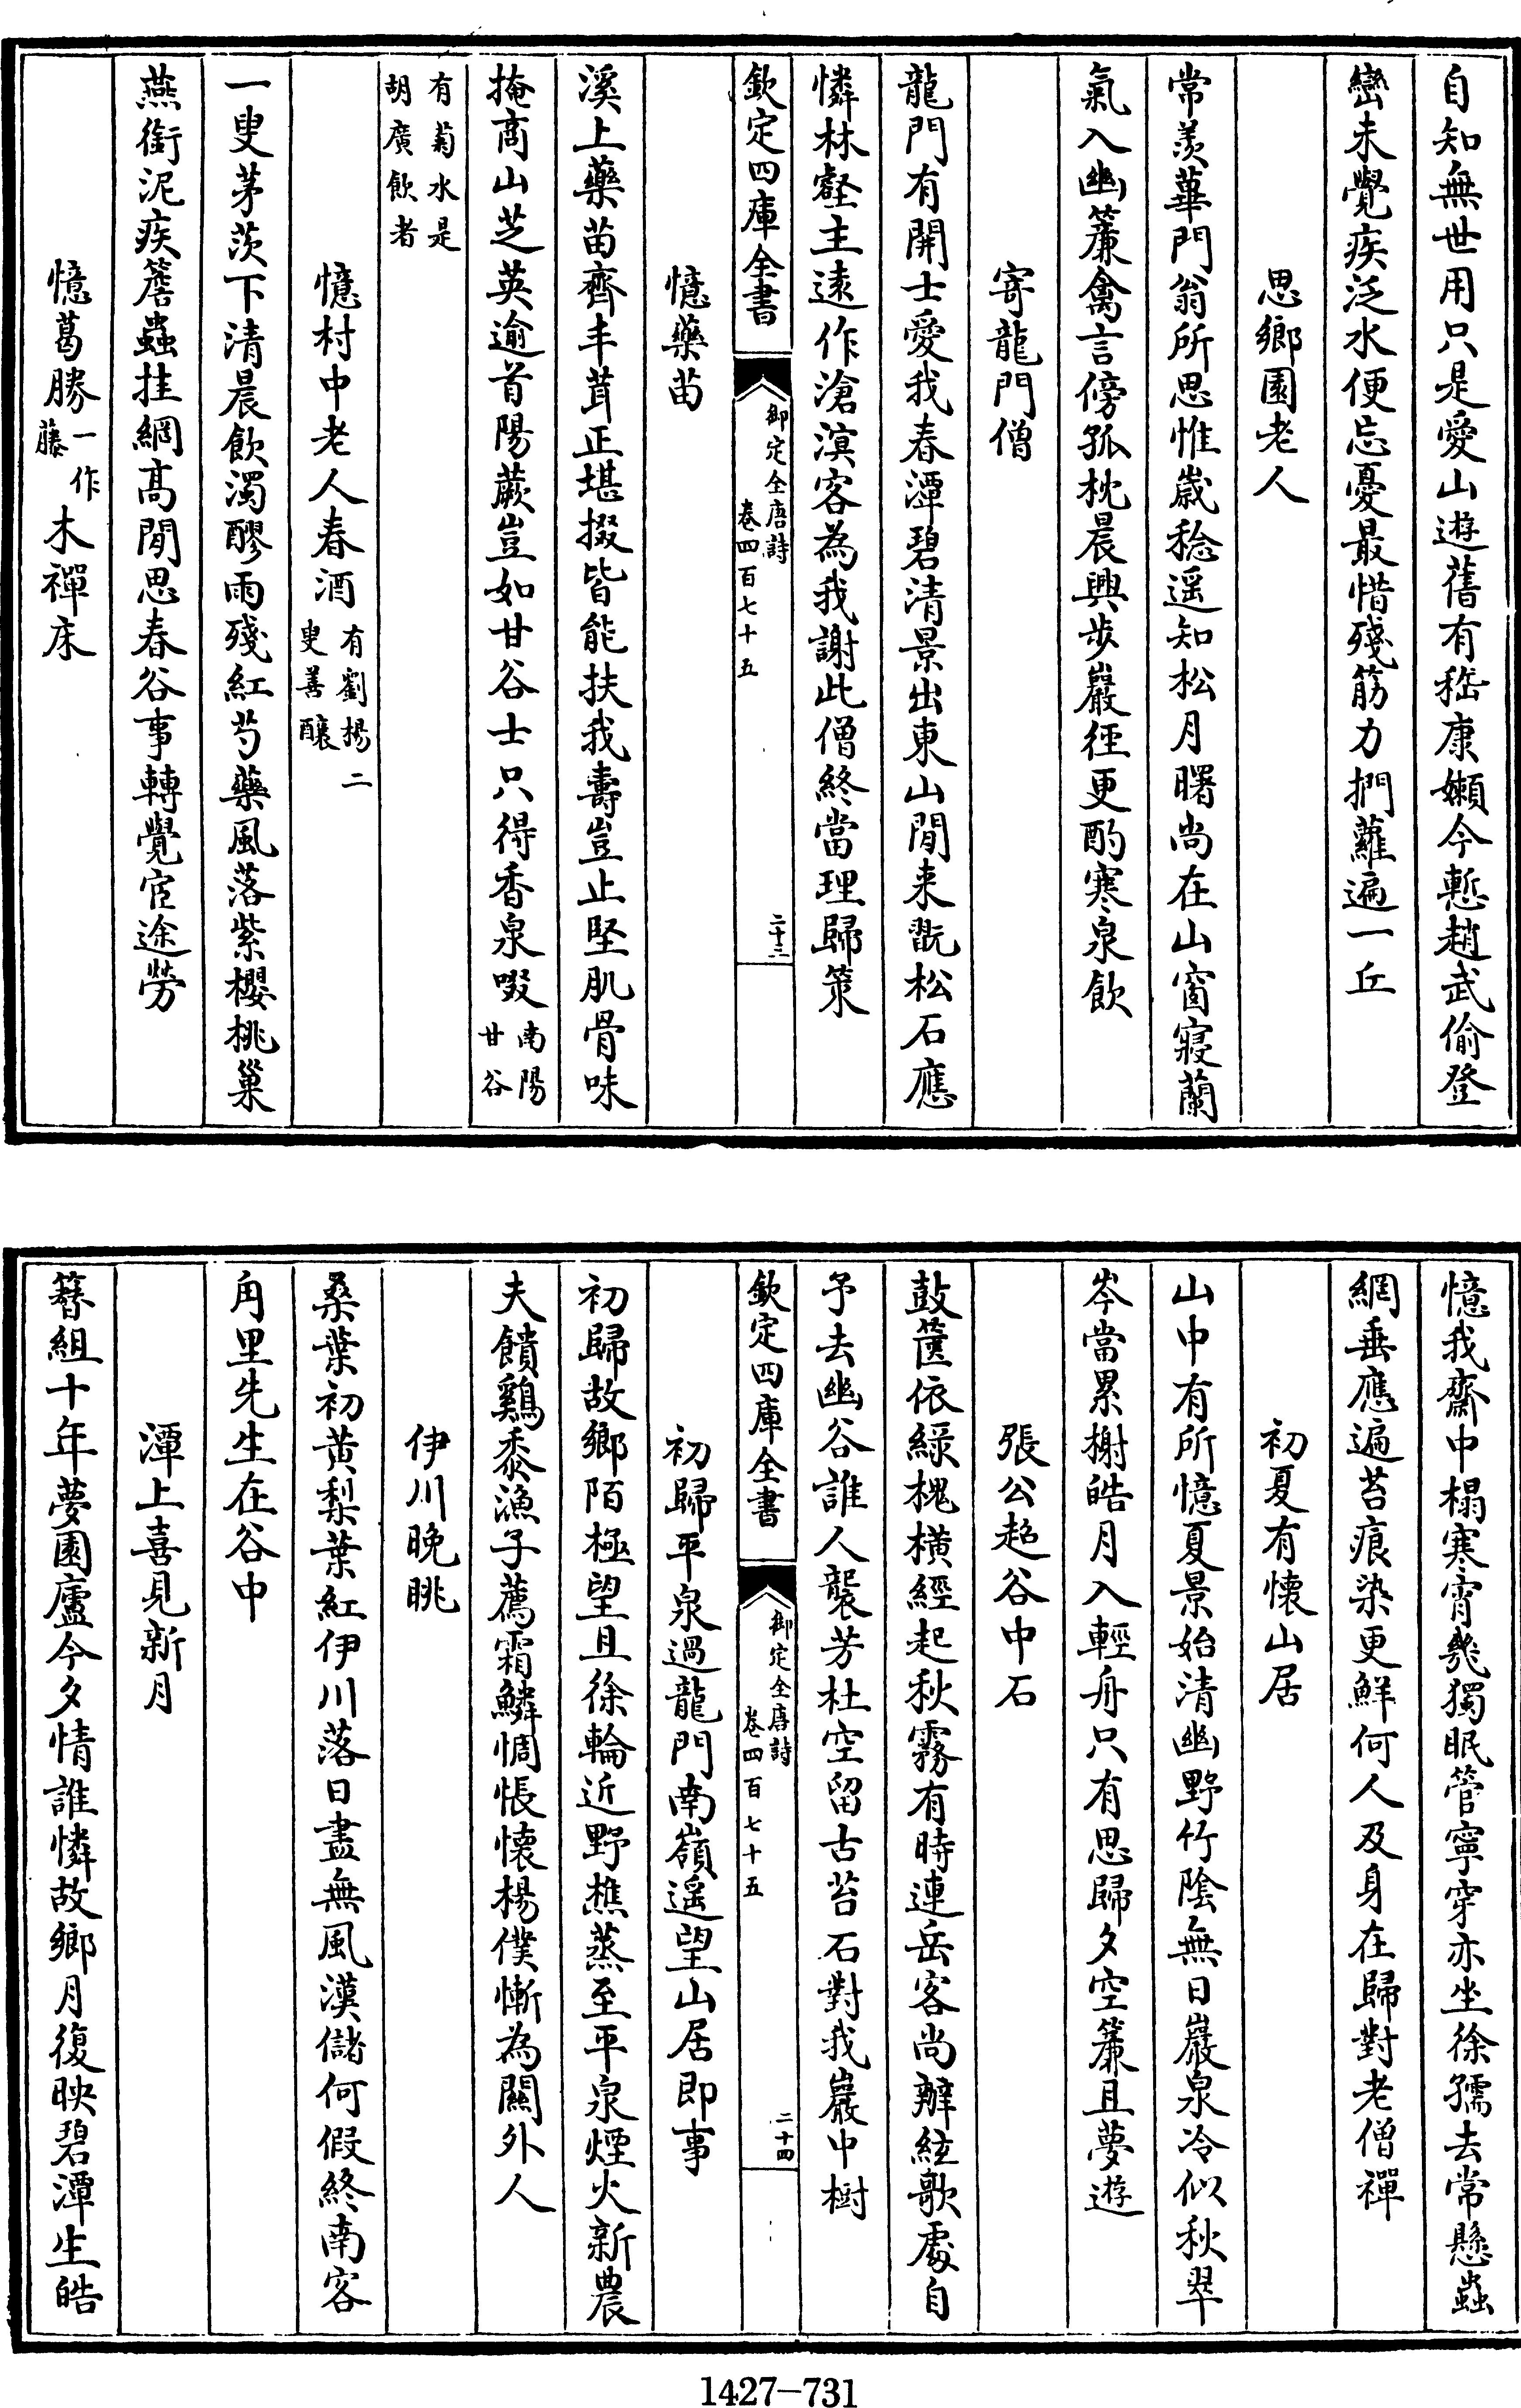 自知無世用只是愛山遊舊有嵇康嬾今慙趙武偷登
巒未覺疾泛水便忘憂最惜殘筋力捫蘿遍一丘
思鄉園老人
常羨蓽門翁所思惟歲稔遥知松月曙尚在山窗寢蘭
氣入幽簾禽言傍孤枕晨興步巖徑更酌寒泉飲
寄龍門僧
龍門有開士愛我春潭碧清景出東山閒来翫松石應
憐林壑主遠作滄溟客為我謝此僧終當理歸策
欽定四庫全書
御定全唐詩
卷四百七十五
二十三
憶藥苗
溪上藥苗齊丰茸正堪掇皆能扶我壽豈止堅肌骨味
掩商山芝英逾首陽蕨豈如甘谷士只得香泉啜南陽
甘谷
有菊水是
胡廣飲者
憶村中老人春酒有劉楊二
叟善釀
一叟茅茨下清晨飲濁醪雨殘紅芍藥風落紫櫻桃巢
燕銜泥疾簷蟲挂網高閒思春谷事轉覺宦途勞
憶葛勝一作
藤木禪床
憶我齋中榻寒宵幾獨眠管寧穿亦坐徐孺去常懸蟲
網垂應遍苔痕染更鮮何人及身在歸對老僧禪
初夏有懷山居
山中有所憶夏景始清幽野竹陰無日巖泉冷似秋翠
岑當累榭皓月入輕舟只有思歸夕空簾且夢遊
張公超谷中石
鼓篋依綠槐橫經起秋霧有時連岳客尚辨絃歌處自
予去幽谷誰人襲芳杜空留古苔石對我巖中樹
欽定四庫全書
御定全唐詩
卷四百七十五
二十四
初歸平泉過龍門南嶺遥望山居即事
初歸故鄉陌極望且徐輪近野樵蒸至平泉煙火新農
夫饋鷄黍漁子薦霜鱗惆悵懷楊僕慚為關外人
伊川晚眺
桑葉初黃梨葉紅伊川落日盡無風漢儲何假終南客
甪里先生在谷中
潭上喜見新月
簪組十年夢園廬今夕情誰憐故鄉月復映碧潭生皓
1427—731